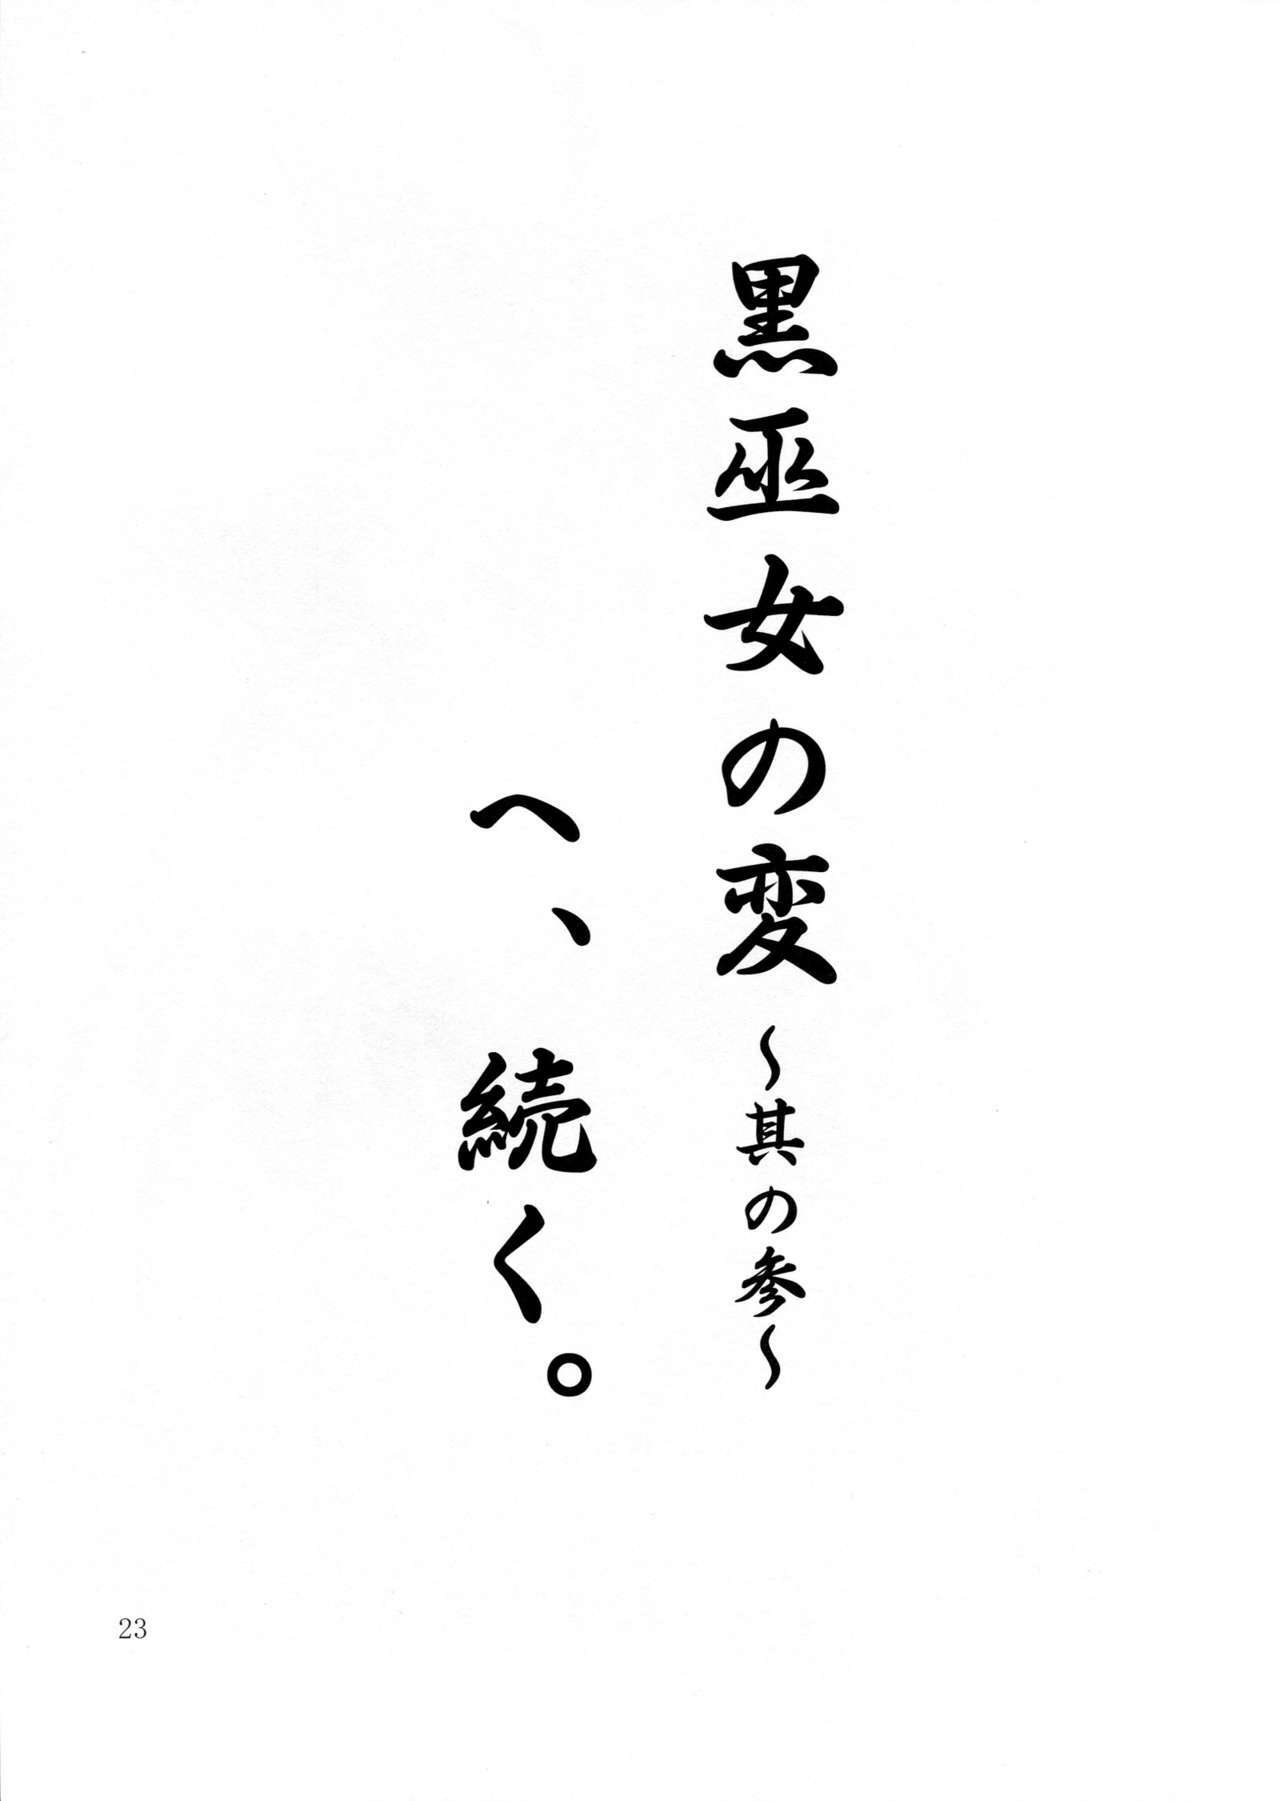 黒巫女の変〜其の参〜
へ、続く。
23